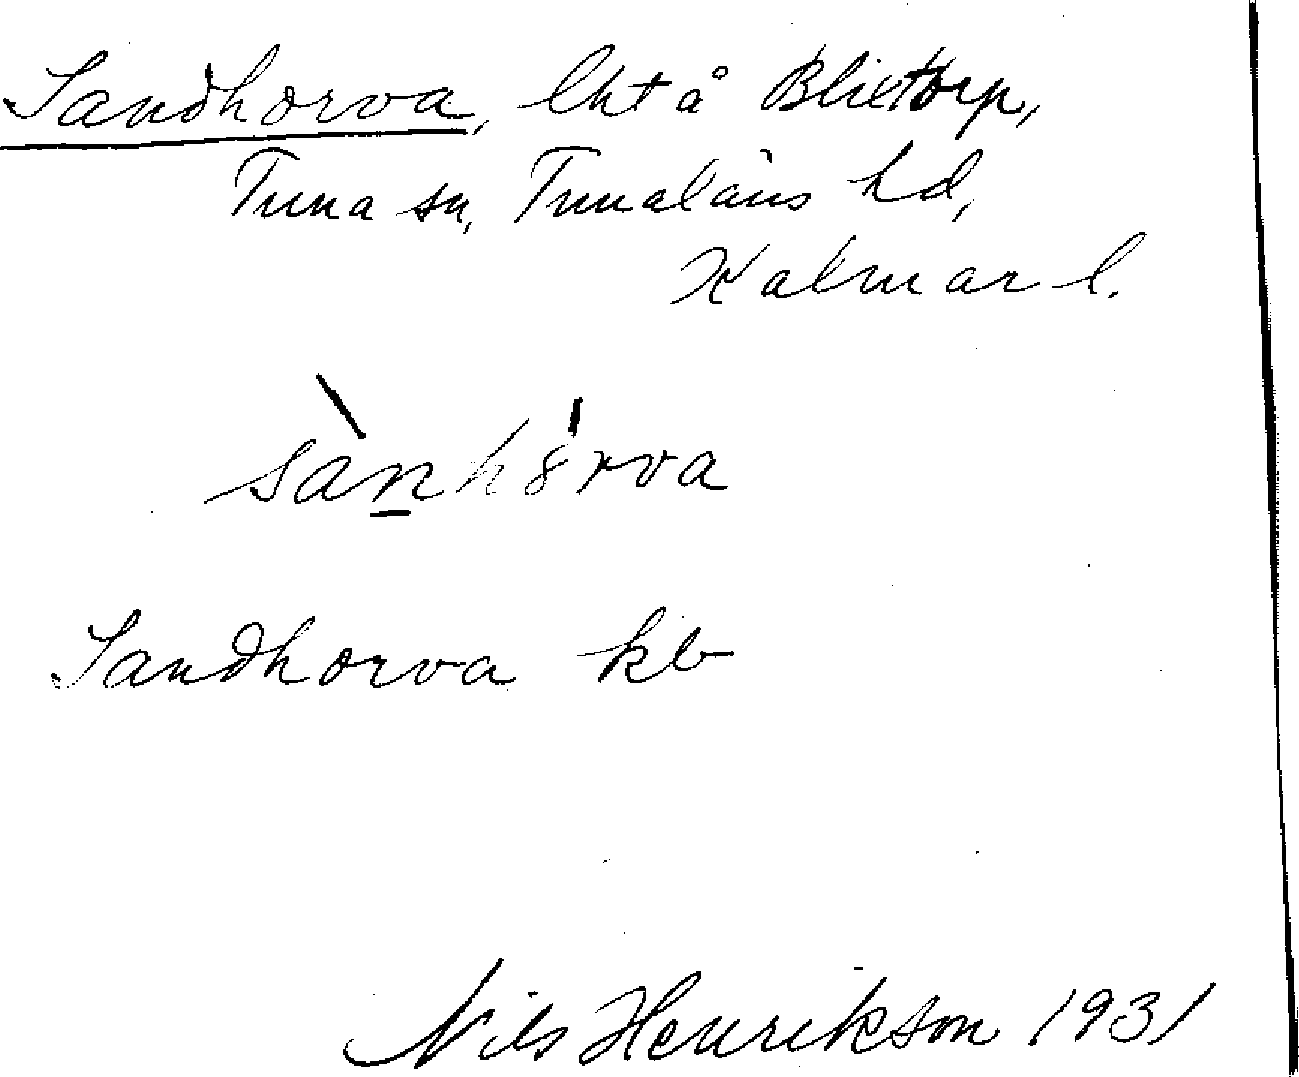 Sandhorva, lht å Blixtorp,
Tuna sn, Tunaläns hd,
Kalmar l.
sànhȯrva
Sandhorva kb
Nils Henrikson 1931